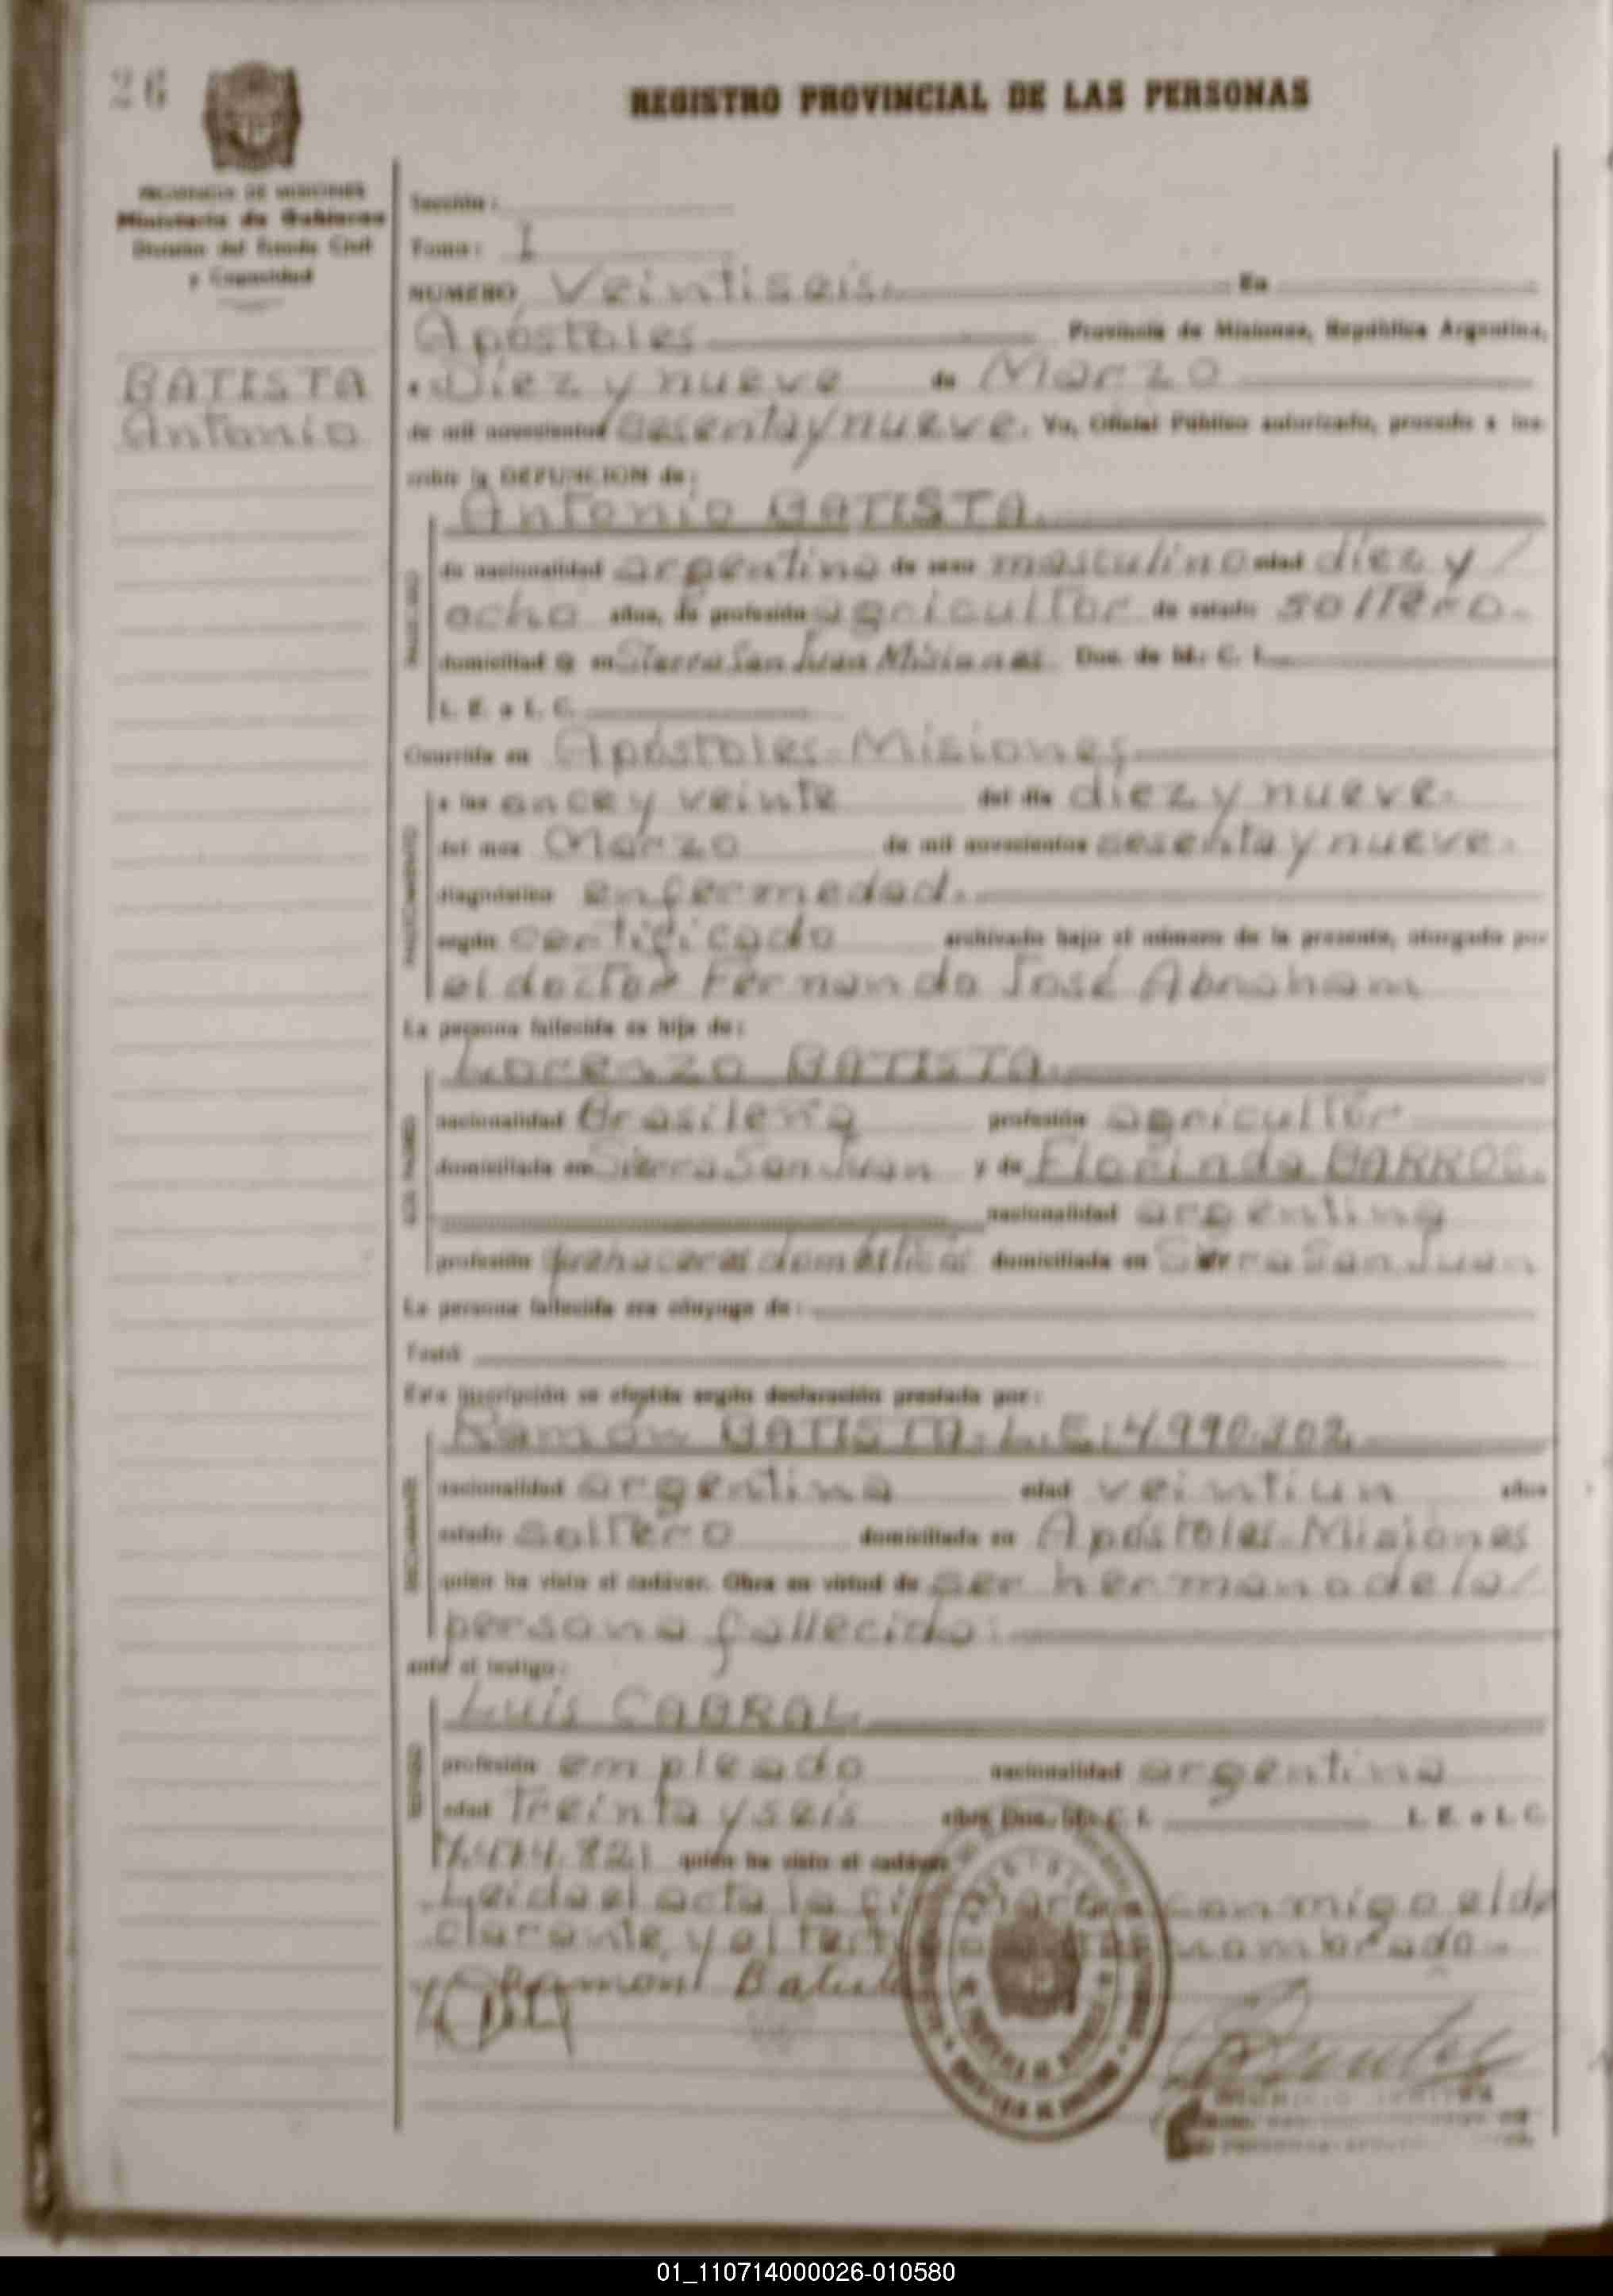 26
REGISTRO PROVINCIAL DE LAS PERSONAS
PROVINCIA DE MISIONES
Ministerio de Gobierno
División del Estado Civil
y Capacidad
BATISTA
Antonio
Sección:
Tomo: I
NUMERO Veintiseis. En
Apóstoles Provincia de Misiones, República Argentina,
a Diez y nueve de Marzo
de mil novecientos sesenta y nueve. Yo, Oficial Público autorizado, procedo a ins-
cribir la DEFUNCION de:
Antonio BATISTA
de nacionalidad argentina de sexo masculino edad diez y
ocho años, de profesión agricultor de estado soltero.
domiciliad o en Sierra San Juan Misiones Doc. de Id.: C. I.
L. E. o L. C.
Ocurrida en Apóstoles Misiones
a las once y veinte del día diez y nueve.
del mes Marzo de mil novecientos sesenta y nueve.
diagnóstico enfermedad.
según certificado archivado bajo el número de la presente, otorgado por
el doctor Fernando José Abraham
La persona fallecida es hija de:
Lorenzo BATISTA.
nacionalidad Brasileña profesión agricultor
domiciliado en Sierra San Juan y de Florinda BARROS.
nacionalidad argentina
profesión quehaceres domésticos domiciliada en Sierra San Juan
La persona fallecida era cónyuge de:
Testó
Esta inscripción se efectúa según declaración prestada por:
Ramón BATISTA. L.E: 4.990.302
nacionalidad argentina edad veintiun años
estado soltero domiciliado en Apóstoles Misiones
quien ha visto el cadáver. Obra en virtud de ser hermano de la
persona fallecida.
ante el testigo:
Luis CABRAL
profesión empleado nacionalidad argentina
edad Treinta y seis años Doc. Id.: C. I. L. E. o L. C.
7.474.821 quien ha visto el cadáver
Leida el acta la firman conmigo el de
clarante, y el testigo nombrado.
Ramon Batista
01_110714000026-010580